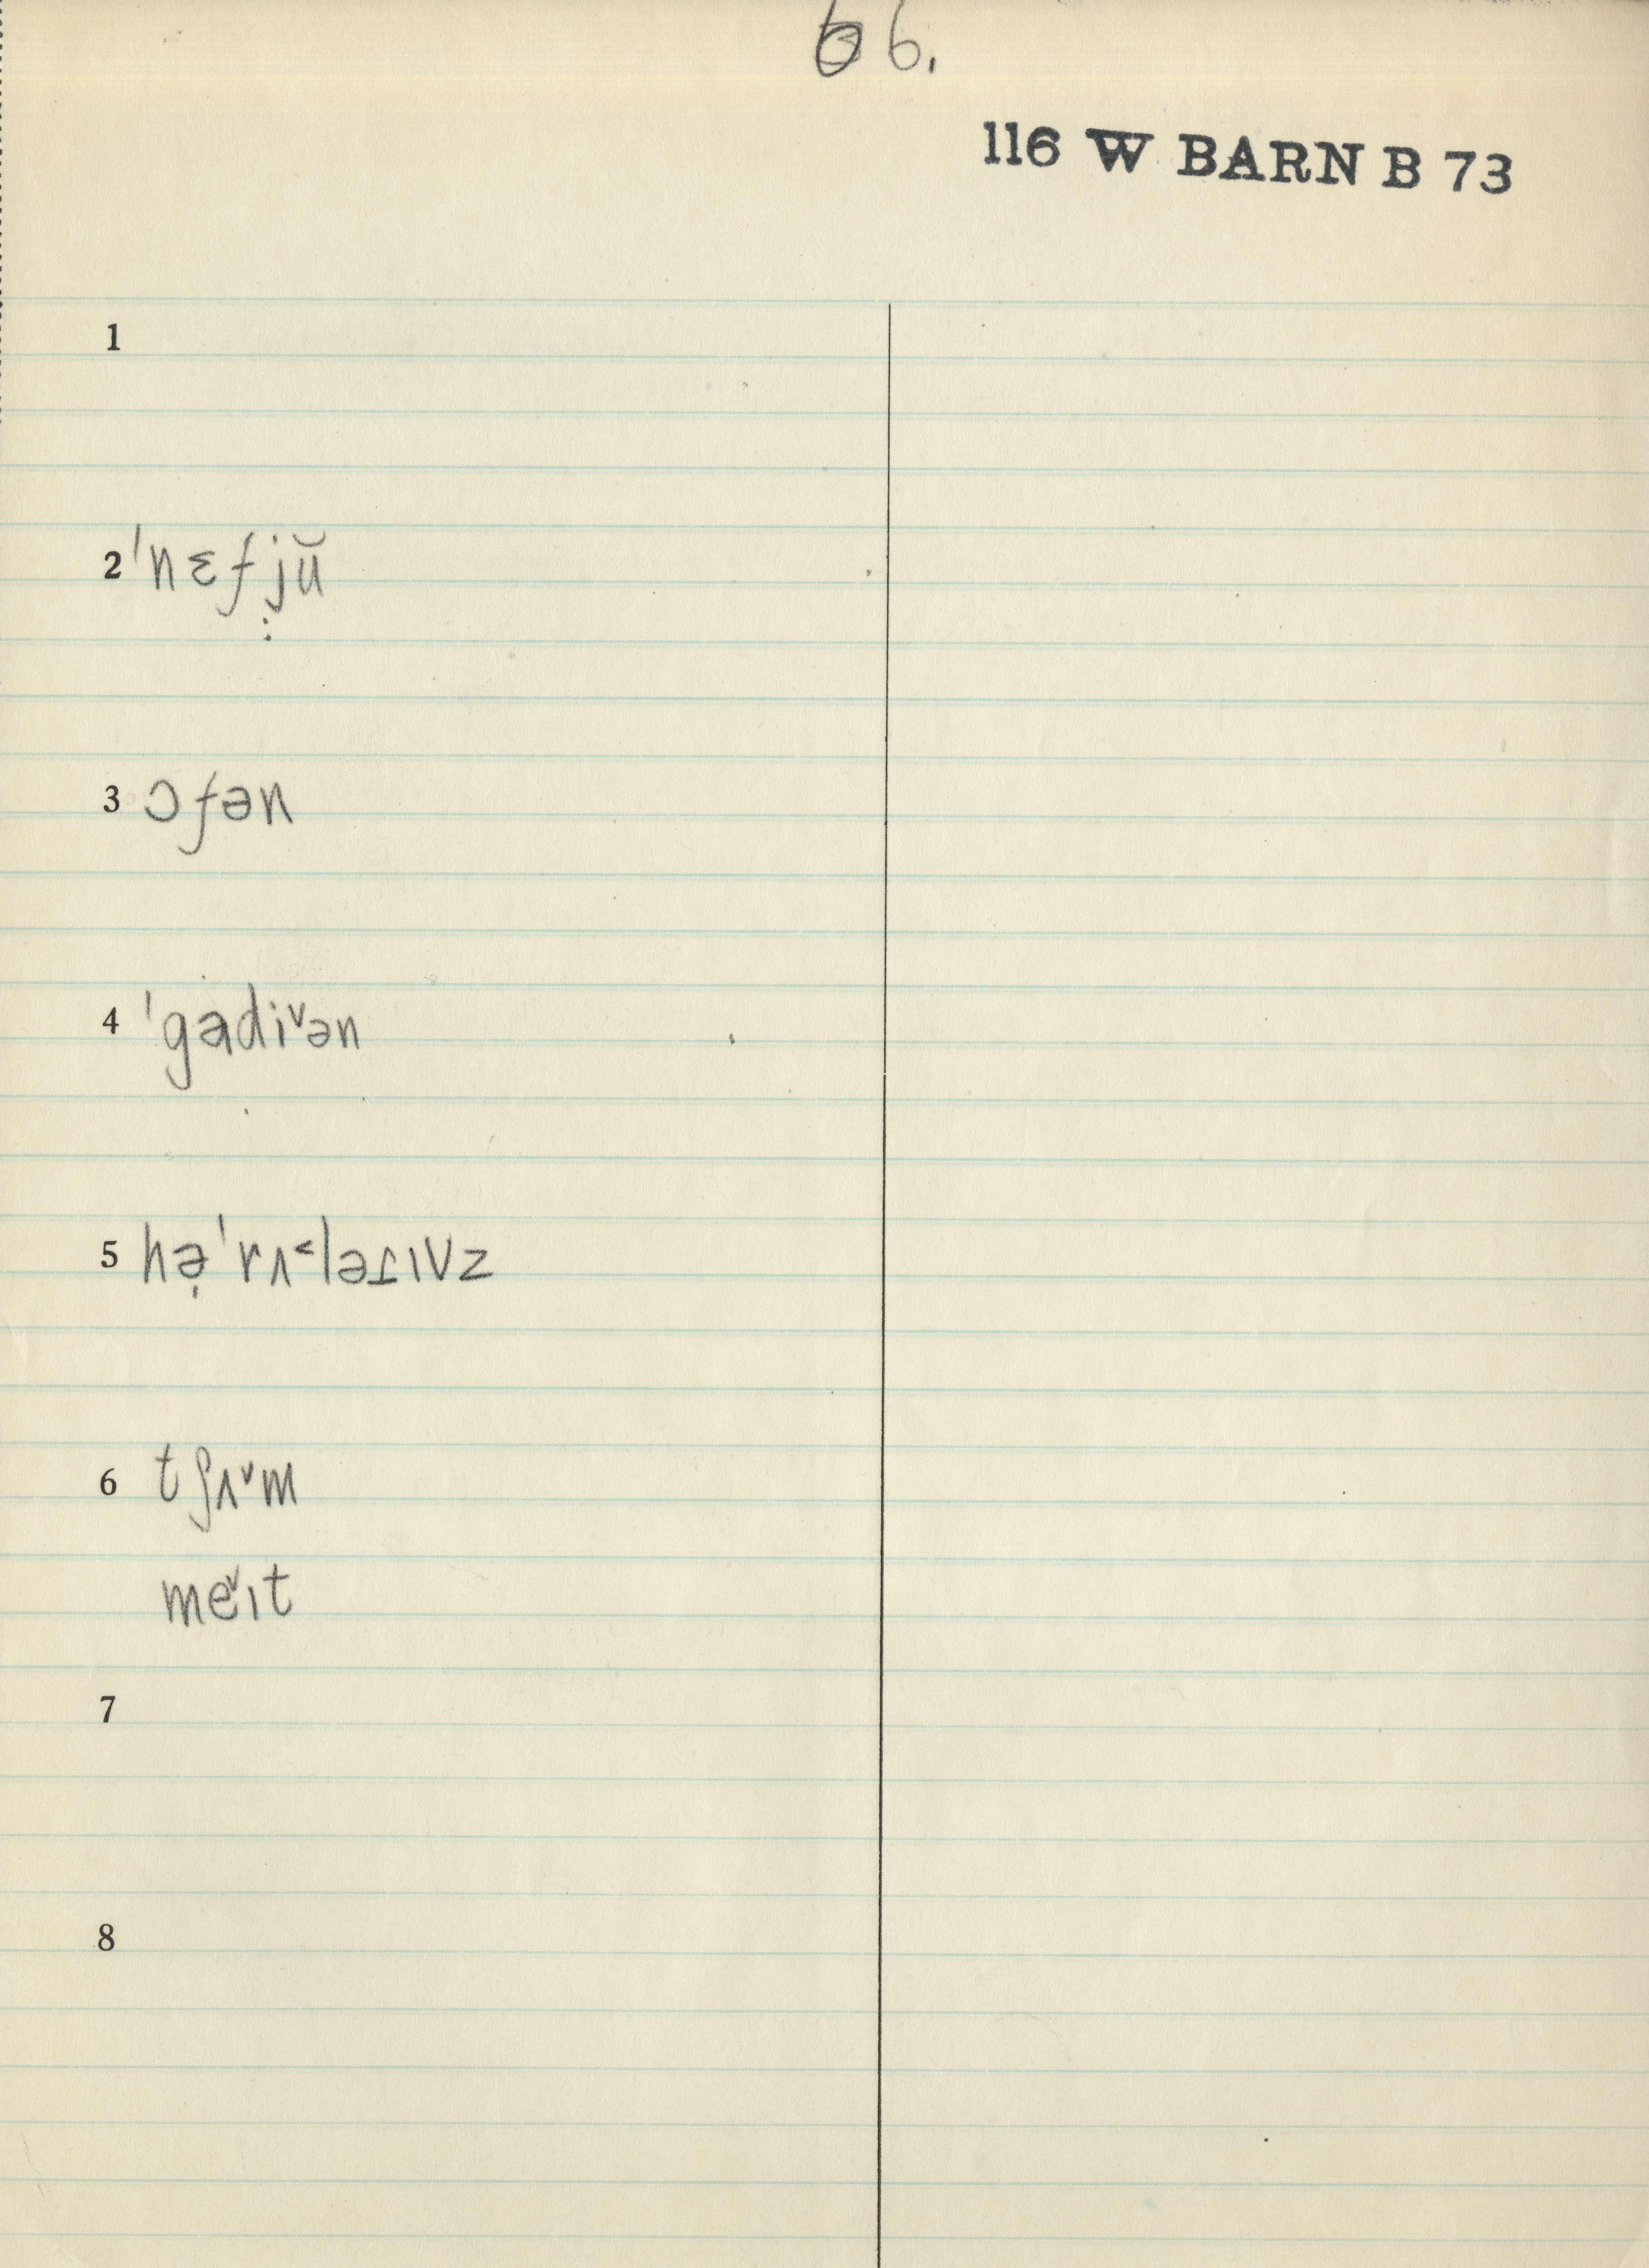 66.
116 W BARN B 73
1
2 ˈnɛfjŭ
3 ɔfən
4 ˈgadi˅ən
5 hə̣ˈrʌ˂ləɪɪvz
6 tʃʌ˅m
me˅ɪt
7
8